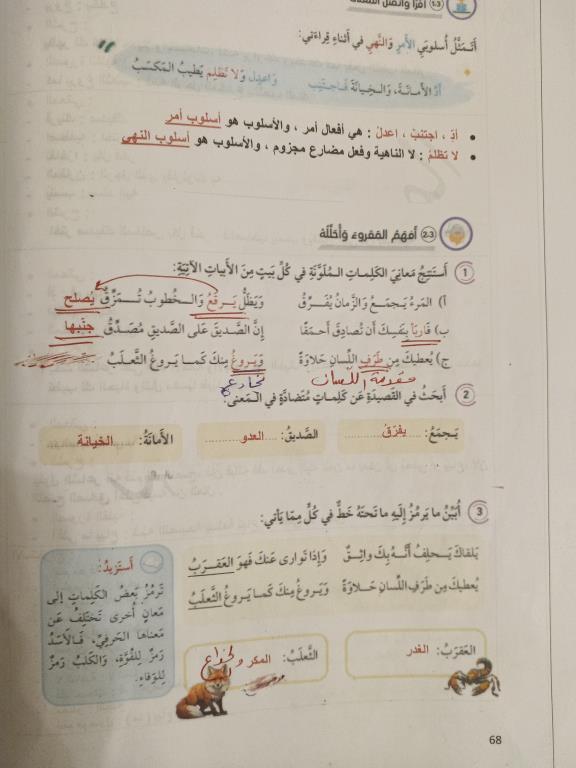 (1-3) أقرأ وأتمثل المعنى
أَتَمَثَّلُ أُسلوبَيِ الأَمرِ وَالنَّهيِ في أَثناءِ قِراءَتي:
أَدِّ الأَمانَةَ، وَالخِيانَةَ فَاجتَنِب وَاعدِل وَلا تَظلِم يَطيبُ المَكسَبُ
• أدِّ ، اجتنبْ ، اعدلْ : هي أفعال أمر ، والأسلوب هو أسلوب أمر
• لا تظلمْ : لا الناهية وفعل مضارع مجزوم ، والأسلوب هو أسلوب النهي
(2-3) أَفهَمُ المَقروءَ وَأُحَلِّلُهُ
1 أَستَنتِجُ مَعانِيَ الكَلِماتِ المُلَوَّنَةِ في كُلِّ بَيتٍ مِنَ الأَبياتِ الآتِيَةِ:
أ) المَرءُ يَجمَعُ وَالزَّمانُ يُفَرِّقُ وَيَظَلُّ يَرقَعُ وَالخُطوبُ تُمَزِّقُ يُصلح
ب) فَاربَأ بِنَفسِكَ أَن تُصادِقَ أَحمَقًا إِنَّ الصَّديقَ عَلى الصَّديقِ مُصَدَّقُ جنّبها
ج) يُعطيكَ مِن طَرَفِ اللِّسانِ حَلاوَةً وَيَروغُ مِنكَ كَما يَروغُ الثَّعلَبُ
مقدمة اللسان يخادع
2 أَبحَثُ في القَصيدَةِ عَن كَلِماتٍ مُتَضادَّةٍ في المَعنى:
يَجمَعُ: يفرّق الصَّديقُ: العدو الأَمانَةُ: الخيانة
3 أُبَيِّنُ ما يَرمُزُ إِلَيهِ ما تَحتَهُ خَطٌّ في كُلٍّ مِمّا يَأتي:
يَلقاكَ يَحلِفُ أَنَّهُ بِكَ واثِقٌ وَإِذا تَوارى عَنكَ فَهوَ العَقرَبُ
يُعطيكَ مِن طَرَفِ اللِّسانِ حَلاوَةً وَيَروغُ مِنكَ كَما يَروغُ الثَّعلَبُ
العَقرَبُ: الغدر
الثَّعلَبُ: المكر والخداع
أَستَزيدُ:
تَرمُزُ بَعضُ الكَلِماتِ إِلى
مَعانٍ أُخرى تَختَلِفُ عَن
مَعناها الحَرفِيِّ، فَالأَسَدُ
رَمزٌ لِلقُوَّةِ، وَالكَلبُ رَمزٌ
لِلوَفاءِ.
68